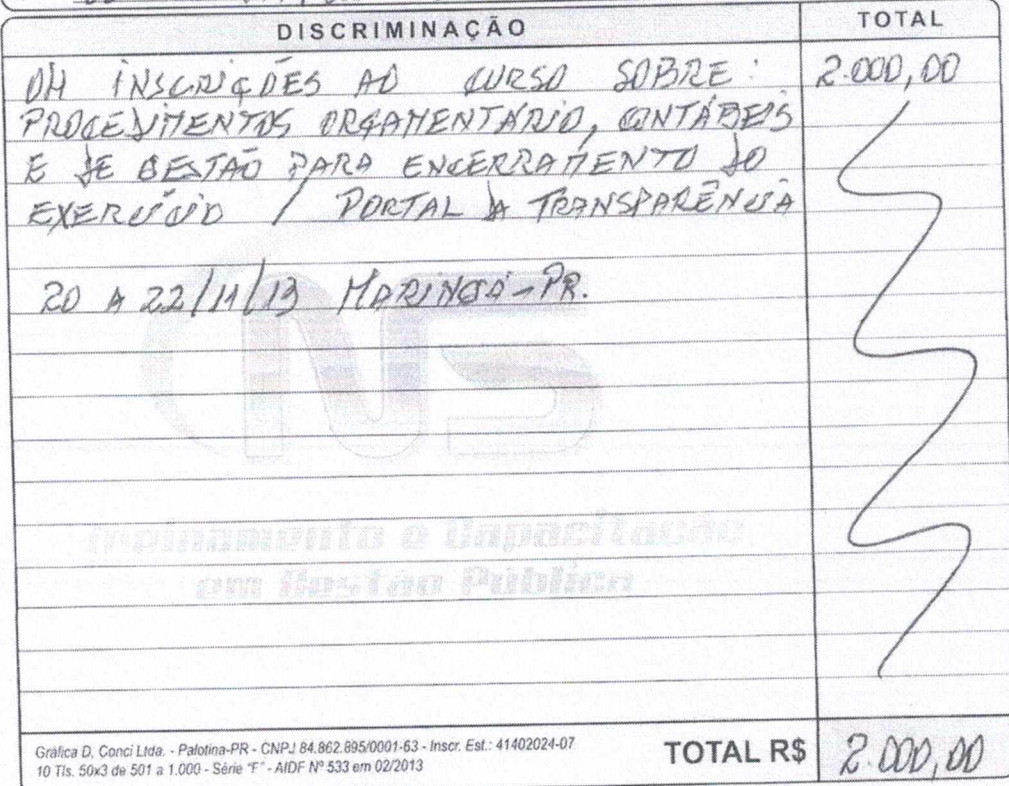 DISCRIMINAÇÃO TOTAL
04 INSCRIÇÕES AO CURSO SOBRE: 2.000,00
PROCEDIMENTOS ORÇAMENTÁRIO, CONTÁBEIS
E DE GESTÃO PARA ENCERRAMENTO DO
EXERCÍCIO / PORTAL DA TRANSPARÊNCIA
20 A 22/11/13 MARINGÁ-PR.
Treinamento e Capacitação
em Gestão Pública
Gráfica D. Conci Ltda. - Palotina-PR - CNPJ 84.862.895/0001-63 - Inscr. Est.: 41402024-07
10 Tls. 50x3 de 501 a 1.000 - Série "F" - AIDF Nº 533 em 02/2013
TOTAL R$ 2.000,00